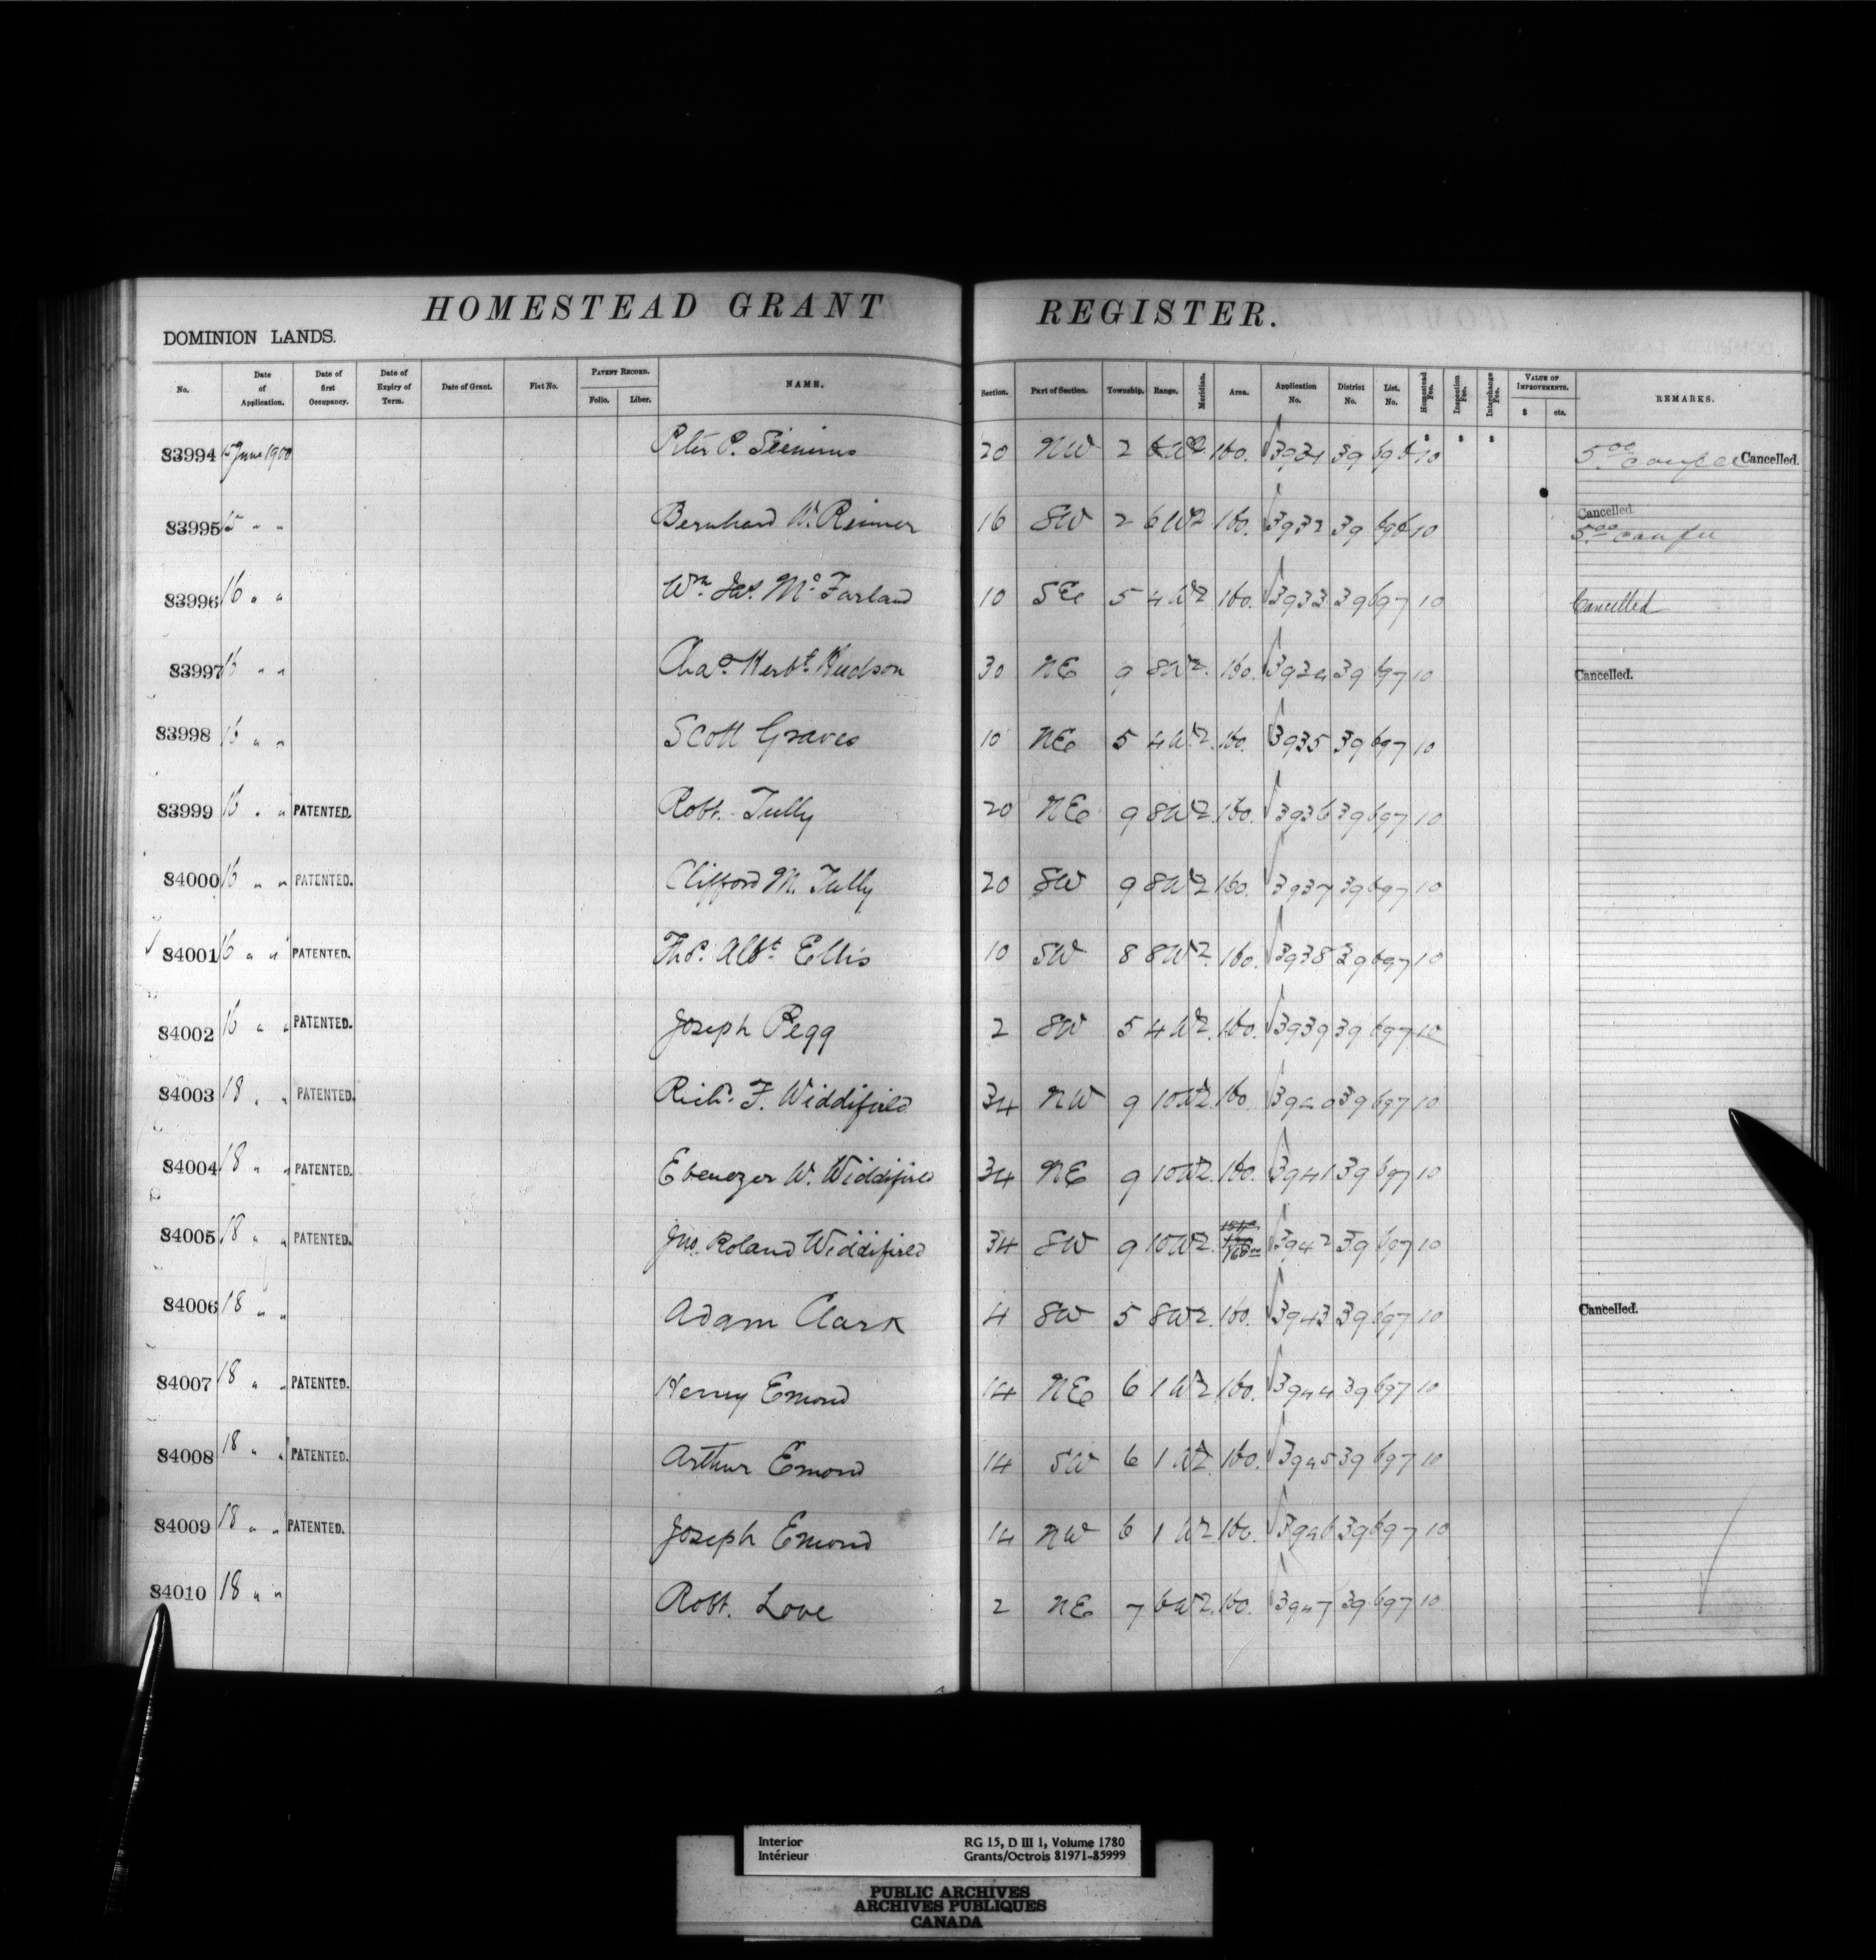 HOMESTEAD GRANT REGISTER.
DOMINION LANDS.
No. Date of Application. Date of first Occupancy. Date of Expiry of Term. Date of Grant. Fiat No. PATENT RECORD. Folio. Liber. NAME. Section. Part of Section. Township. Range. Meridian. Area. Application No. District No. List. No. Homestead Fee. Inspection Fee. Interchange Fee. VALUE OF IMPROVEMENTS. $ cts. REMARKS.
83994 15 June 1900 Peter P. 20 NW 2 6 W2. 160. 3931 39 696 10 5.00 Cancelled.
83995 15 " " Bernhard W. Reimer 16 SW 2 6 W2 160. 3932 39 696 10 Cancelled 5.00
83996 16 " " Wm Jas. McFarland 10 SE 5 4 W2 160. 3933 39 697 10 Cancelled
83997 16 " " Chas Herbt. Hudson 30 NE 9 8 W2. 160. 3934 39 697 10 Cancelled.
83998 16 " " Scott Graves 10 NE 5 4 W2. 160. 3935 39 697 10
83999 16 " " PATENTED. Robt. Tully 20 NE 9 8 W2. 160. 3936 39 697 10
84000 16 " " PATENTED. Clifford M. Tully 20 SW 9 8 W2 160. 3937 39 697 10
84001 16 " " PATENTED. Thos. Albt. Ellis 10 SW 8 8 W2. 160. 3938 39 697 10
84002 16 " " PATENTED. Joseph Pegg 2 SW 5 4 W2. 160. 3939 39 697 10
84003 18 " " PATENTED. Richd. F. Widdifield 34 NW 9 10 W2. 160 3940 39 697 10
84004 18 " " PATENTED. Ebenezer W. Widdifield 34 NE 9 10 W2. 160. 3941 39 697 10
84005 18 " " PATENTED. Jno. Roland Widdifield 34 SW 9 10 W2. 160 3942 39 697 10
84006 18 " " Adam Clark 4 SW 5 8 W2. 160. 3943 39 697 10 Cancelled.
84007 18 " " PATENTED. Henry Emond 14 NE 6 1 W2. 160. 3944 39 697 10
84008 18 " " PATENTED. Arthur Emond 14 SW 6 1 W2. 160. 3945 39 697 10
84009 18 " " PATENTED. Joseph Emond 14 NW 6 1 W2 160. 3946 39 697 10
84010 18 " " Robt. Love 2 NE 7 6 W2. 160. 3947 39 697 10
Interior RG 15, D III 1, Volume 1780
Intérieur Grants/Octrois 81971-85999
PUBLIC ARCHIVES
ARCHIVES PUBLIQUES
CANADA